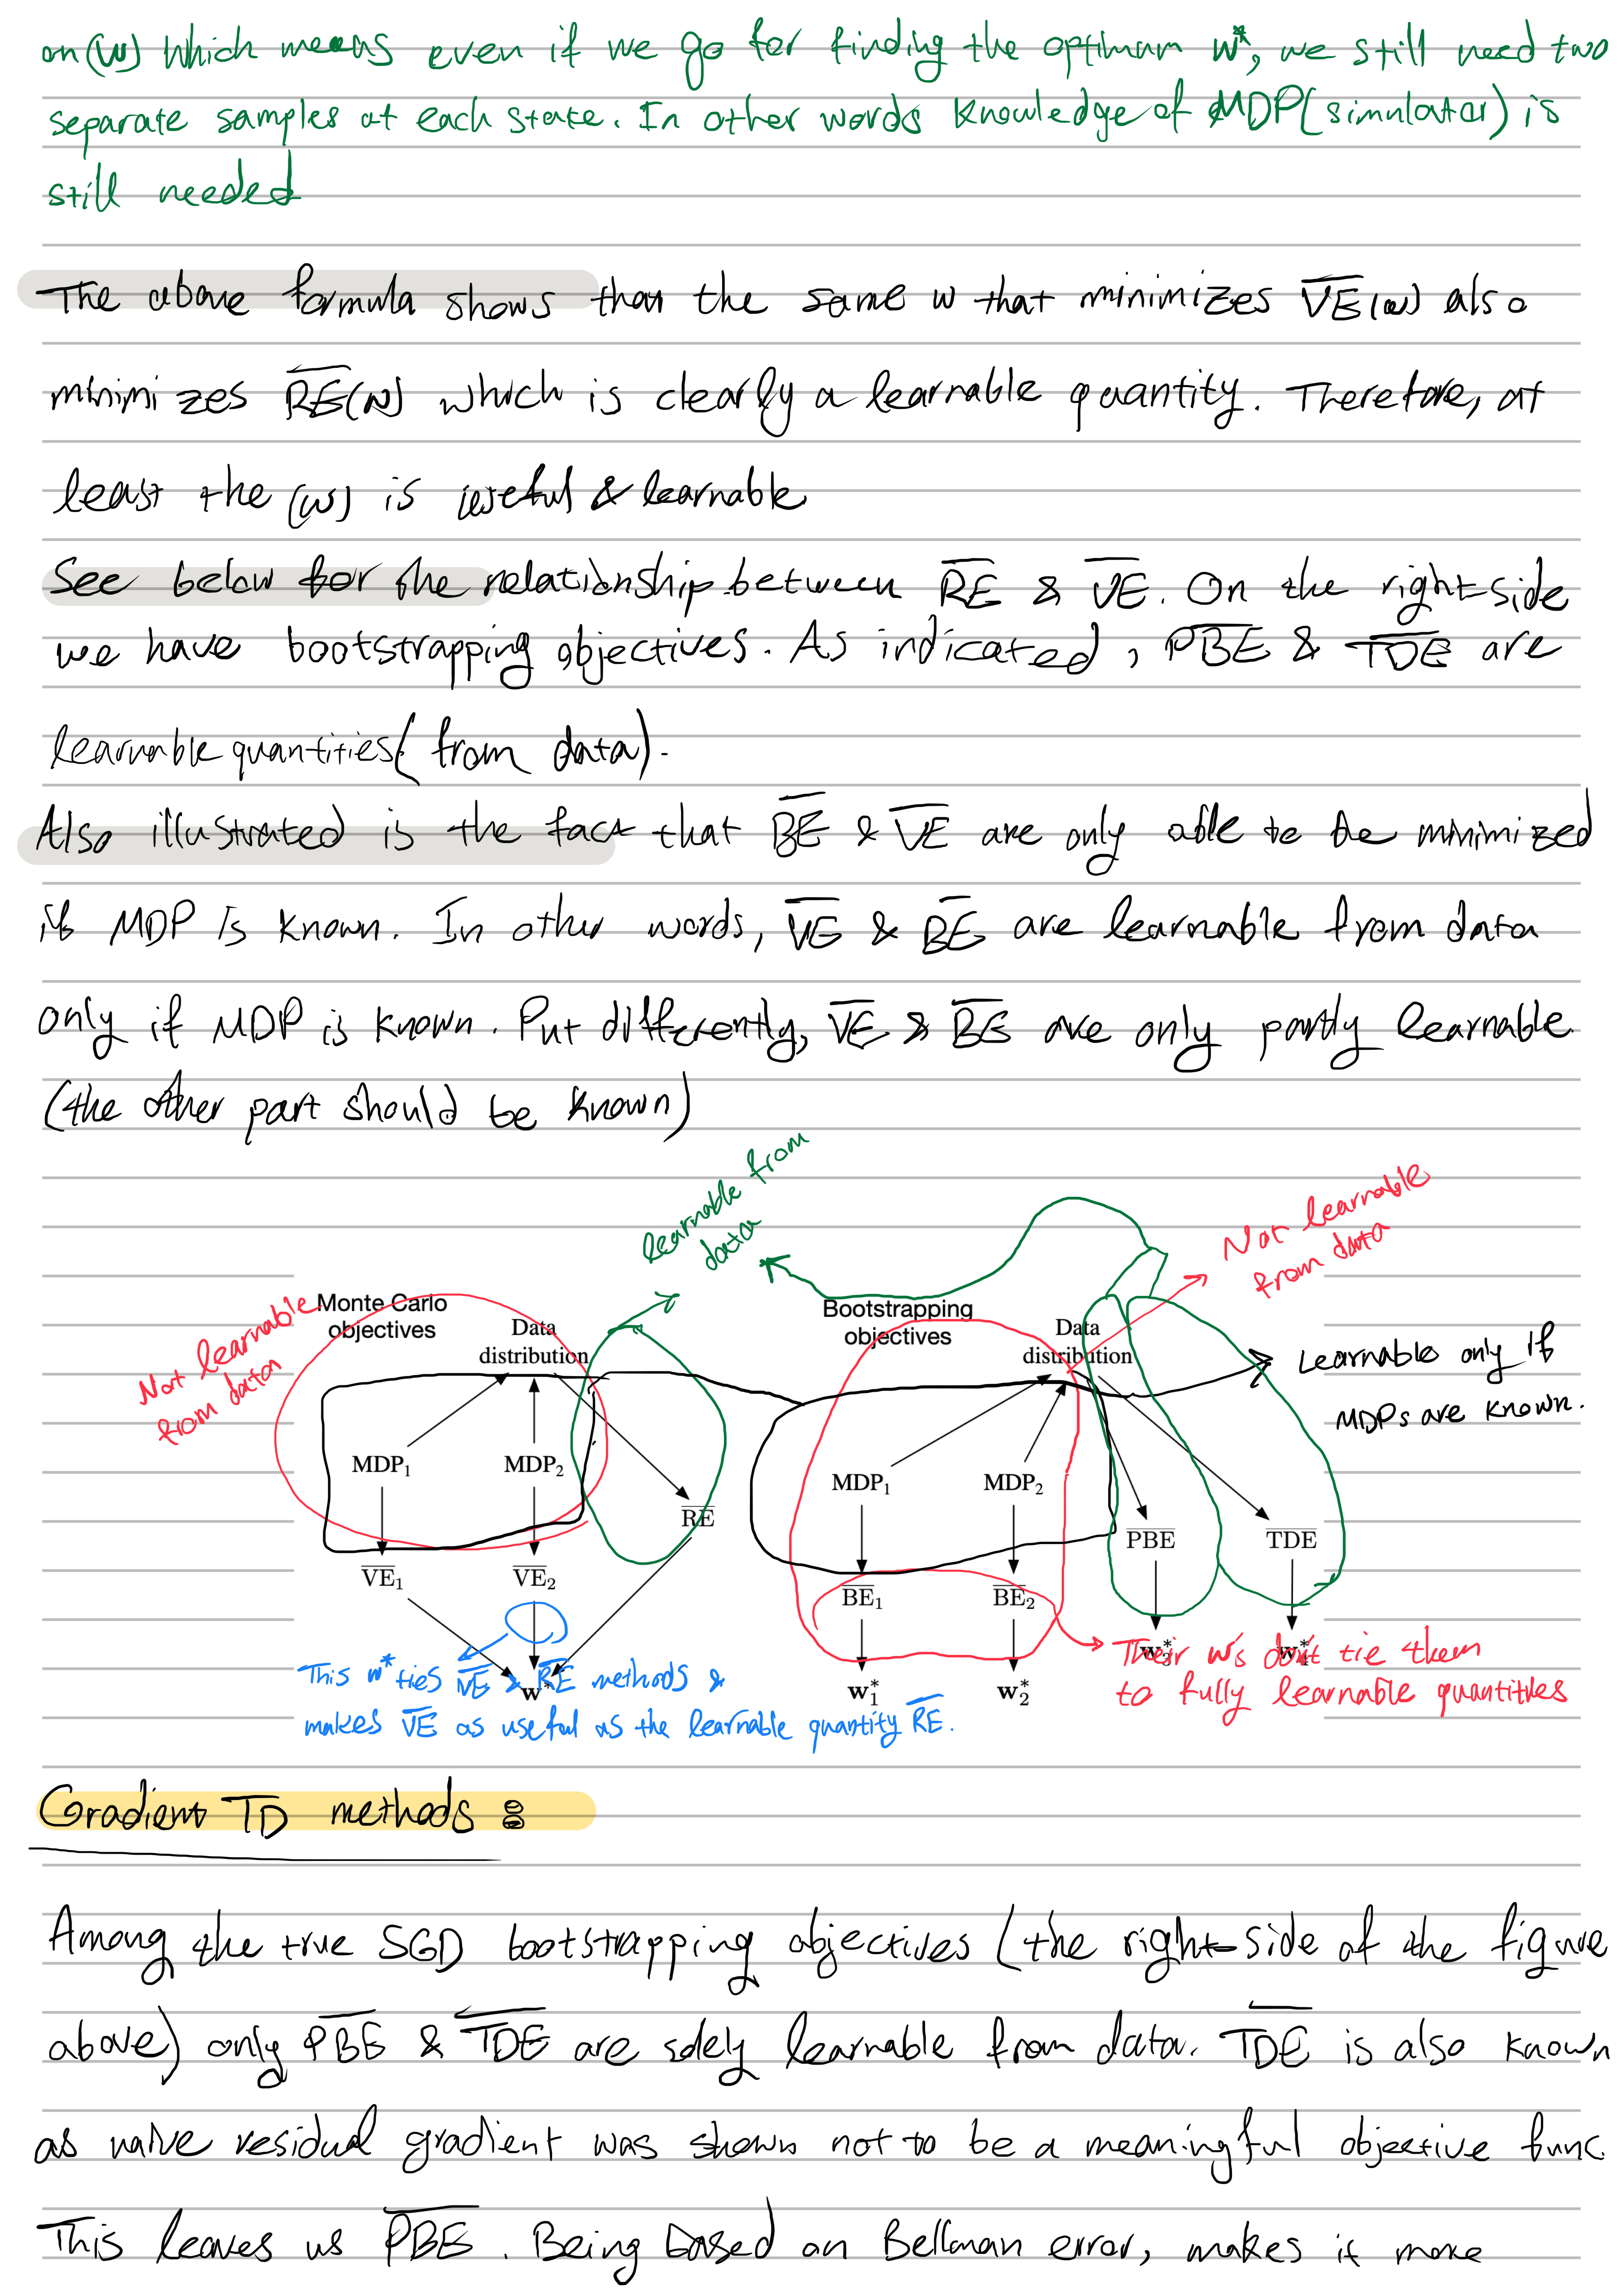 on (w) which means even if we go for finding the optimum w*, we still need two
separate samples at each state. In other words knowledge of MDP (simulator) is
still needed
The above formula shows than the same w that minimizes V̅E̅(w) also
minimizes R̅E̅(w) which is clearly a learnable quantity. Therefore, at
least the (w) is useful & learnable
See below for the relationship between R̅E̅ & V̅E̅. On the right side
we have bootstrapping objectives. As indicated, P̅B̅E̅ & T̅D̅E̅ are
learnable quantities (from data).
Also illustrated is the fact that B̅E̅ & V̅E̅ are only able to be minimized
if MDP is known. In other words, V̅E̅ & B̅E̅ are learnable from data
only if MDP is known. Put differently, V̅E̅ & B̅E̅ are only partly learnable.
(the other part should be known)
learnable from
data
Not learnable
from data
Not learnable
from data
Monte Carlo
objectives
Data
distribution
Bootstrapping
objectives
Data
distribution
Learnable only if
MDPs are known.
MDP₁ MDP₂
R̅E̅
MDP₁ MDP₂
P̅B̅E̅ T̅D̅E̅
V̅E̅₁ V̅E̅₂
B̅E̅₁ B̅E̅₂
w*
w₁* w₂* w₃* w₄*
This w* ties V̅E̅ & R̅E̅ methods &
makes V̅E̅ as useful as the learnable quantity R̅E̅.
Their w's don't tie them
to fully learnable quantities
Gradient TD methods :
Among the true SGD bootstrapping objectives (the right side of the figure
above) only P̅B̅E̅ & T̅D̅E̅ are solely learnable from data. T̅D̅E̅ is also known
as naive residual gradient was shown not to be a meaningful objective func.
This leaves us P̅B̅E̅. Being based on Bellman error, makes it more